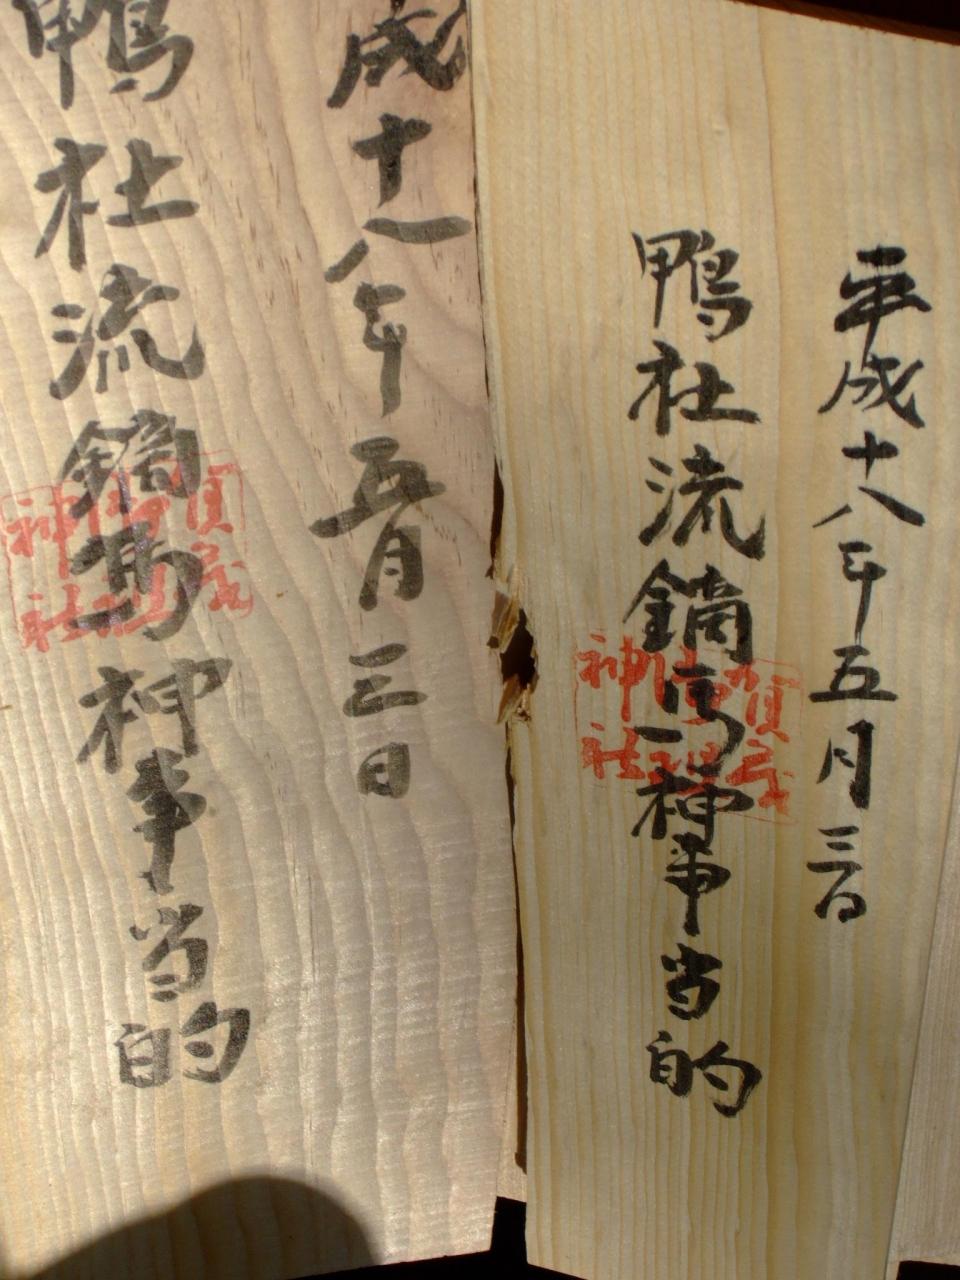 平成十八年五月三日
鴨社流鏑馬神事当的
賀茂
御祖
神社
成十八年五月三日
鴨社流鏑馬神事当的
賀茂
御祖
神社